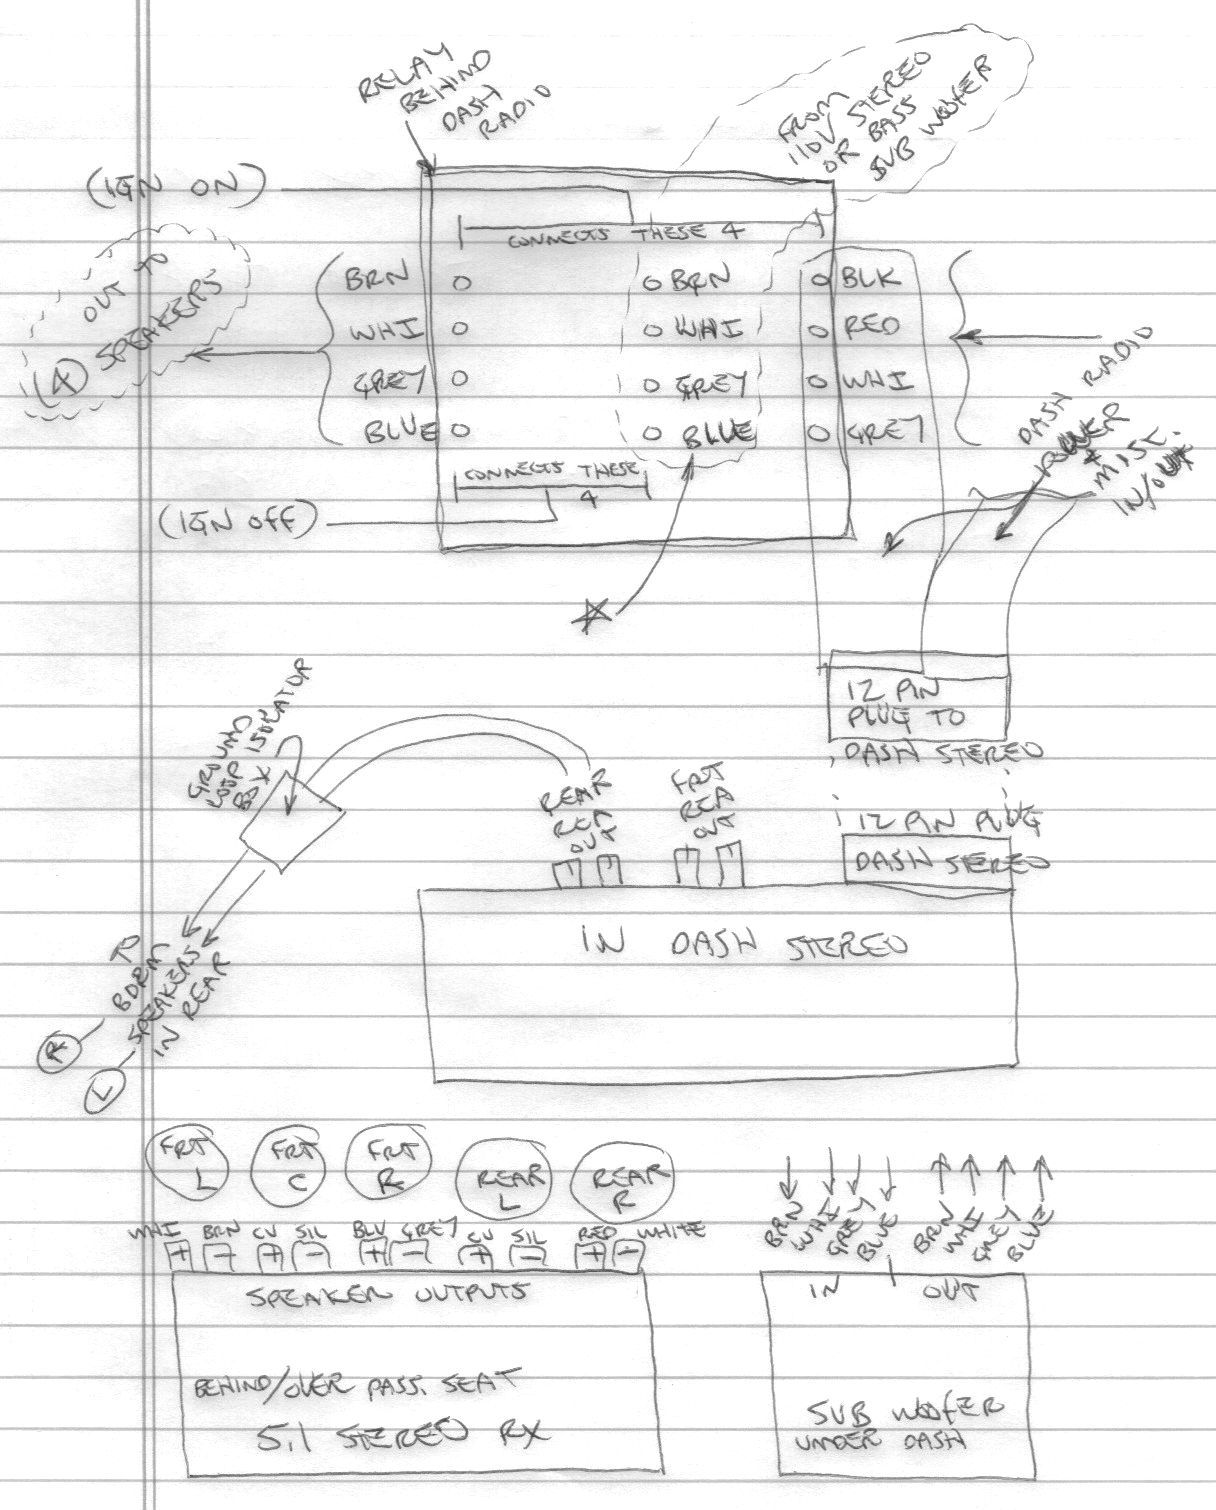 RELAY
BEHIND
DASH
RADIO
FROM
110V STEREO
OR BASS
SUB WOOFER
(IGN ON)
CONNECTS THESE 4
OUT TO
(4) SPEAKERS
BRN
BRN
BLK
WHI
WHI
RED
GREY
GREY
WHI
BLUE
BLUE
GREY
DASH RADIO
POWER
+
MISC.
IN/OUT
CONNECTS THESE
4
(IGN OFF)
12 PIN
PLUG TO
DASH STEREO
GROUND
LOOP ISOLATOR
BOX
REAR
RCA
OUT
FRT
RCA
OUT
12 PIN PLUG
DASH STEREO
IN DASH STEREO
TO
BDRM
SPEAKERS
IN REAR
R
L
FRT
L
FRT
C
FRT
R
REAR
L
REAR
R
WHI BRN CU SIL BLU GREY CU SIL RED WHITE
+ - + - + - + - + -
SPEAKER OUTPUTS
BEHIND/OVER PASS. SEAT
5.1 STEREO RX
BRN
WHI
GREY
BLUE
BRN
WHI
GREY
BLUE
IN OUT
SUB WOOFER
UNDER DASH